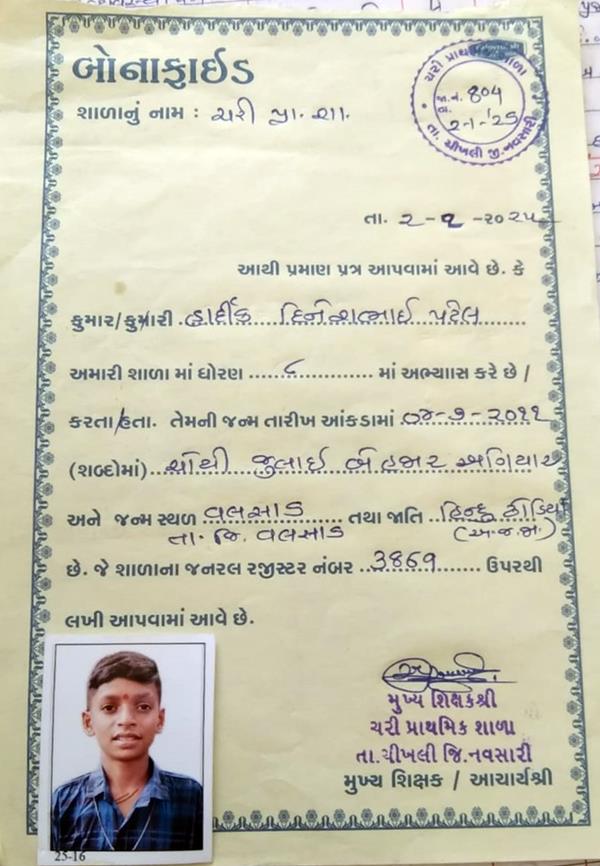 બોનાફાઈડ
શાળાનું નામ : ચરી પ્રા. શા.
ચરી પ્રાથમિક શાળા
જા.નં. 804
તા. 2-1-'25
તા. ચીખલી જી. નવસારી
તા. ૨-૧-૨૦૨૫
આથી પ્રમાણ પત્ર આપવામાં આવે છે. કે
કુમાર/કુમારી હાર્દીક દિનેશભાઈ પટેલ
અમારી શાળા માં ધોરણ ૮ માં અભ્યાસ કરે છે /
કરતા/હતા. તેમની જન્મ તારીખ આંકડામાં ૦૪-૭-૨૦૧૧
(શબ્દોમાં) ચોથી જુલાઈ બેહજાર અગિયાર
અને જન્મ સ્થળ વલસાડ તથા જાતિ હિન્દુ ધોડિયા
તા. જિ. વલસાડ (અ.જ.જા.)
છે. જે શાળાના જનરલ રજીસ્ટર નંબર 3869 ઉપરથી
લખી આપવામાં આવે છે.
મુખ્ય શિક્ષકશ્રી
ચરી પ્રાથમિક શાળા
તા.ચીખલી જિ.નવસારી
મુખ્ય શિક્ષક / આચાર્યશ્રી
25-16